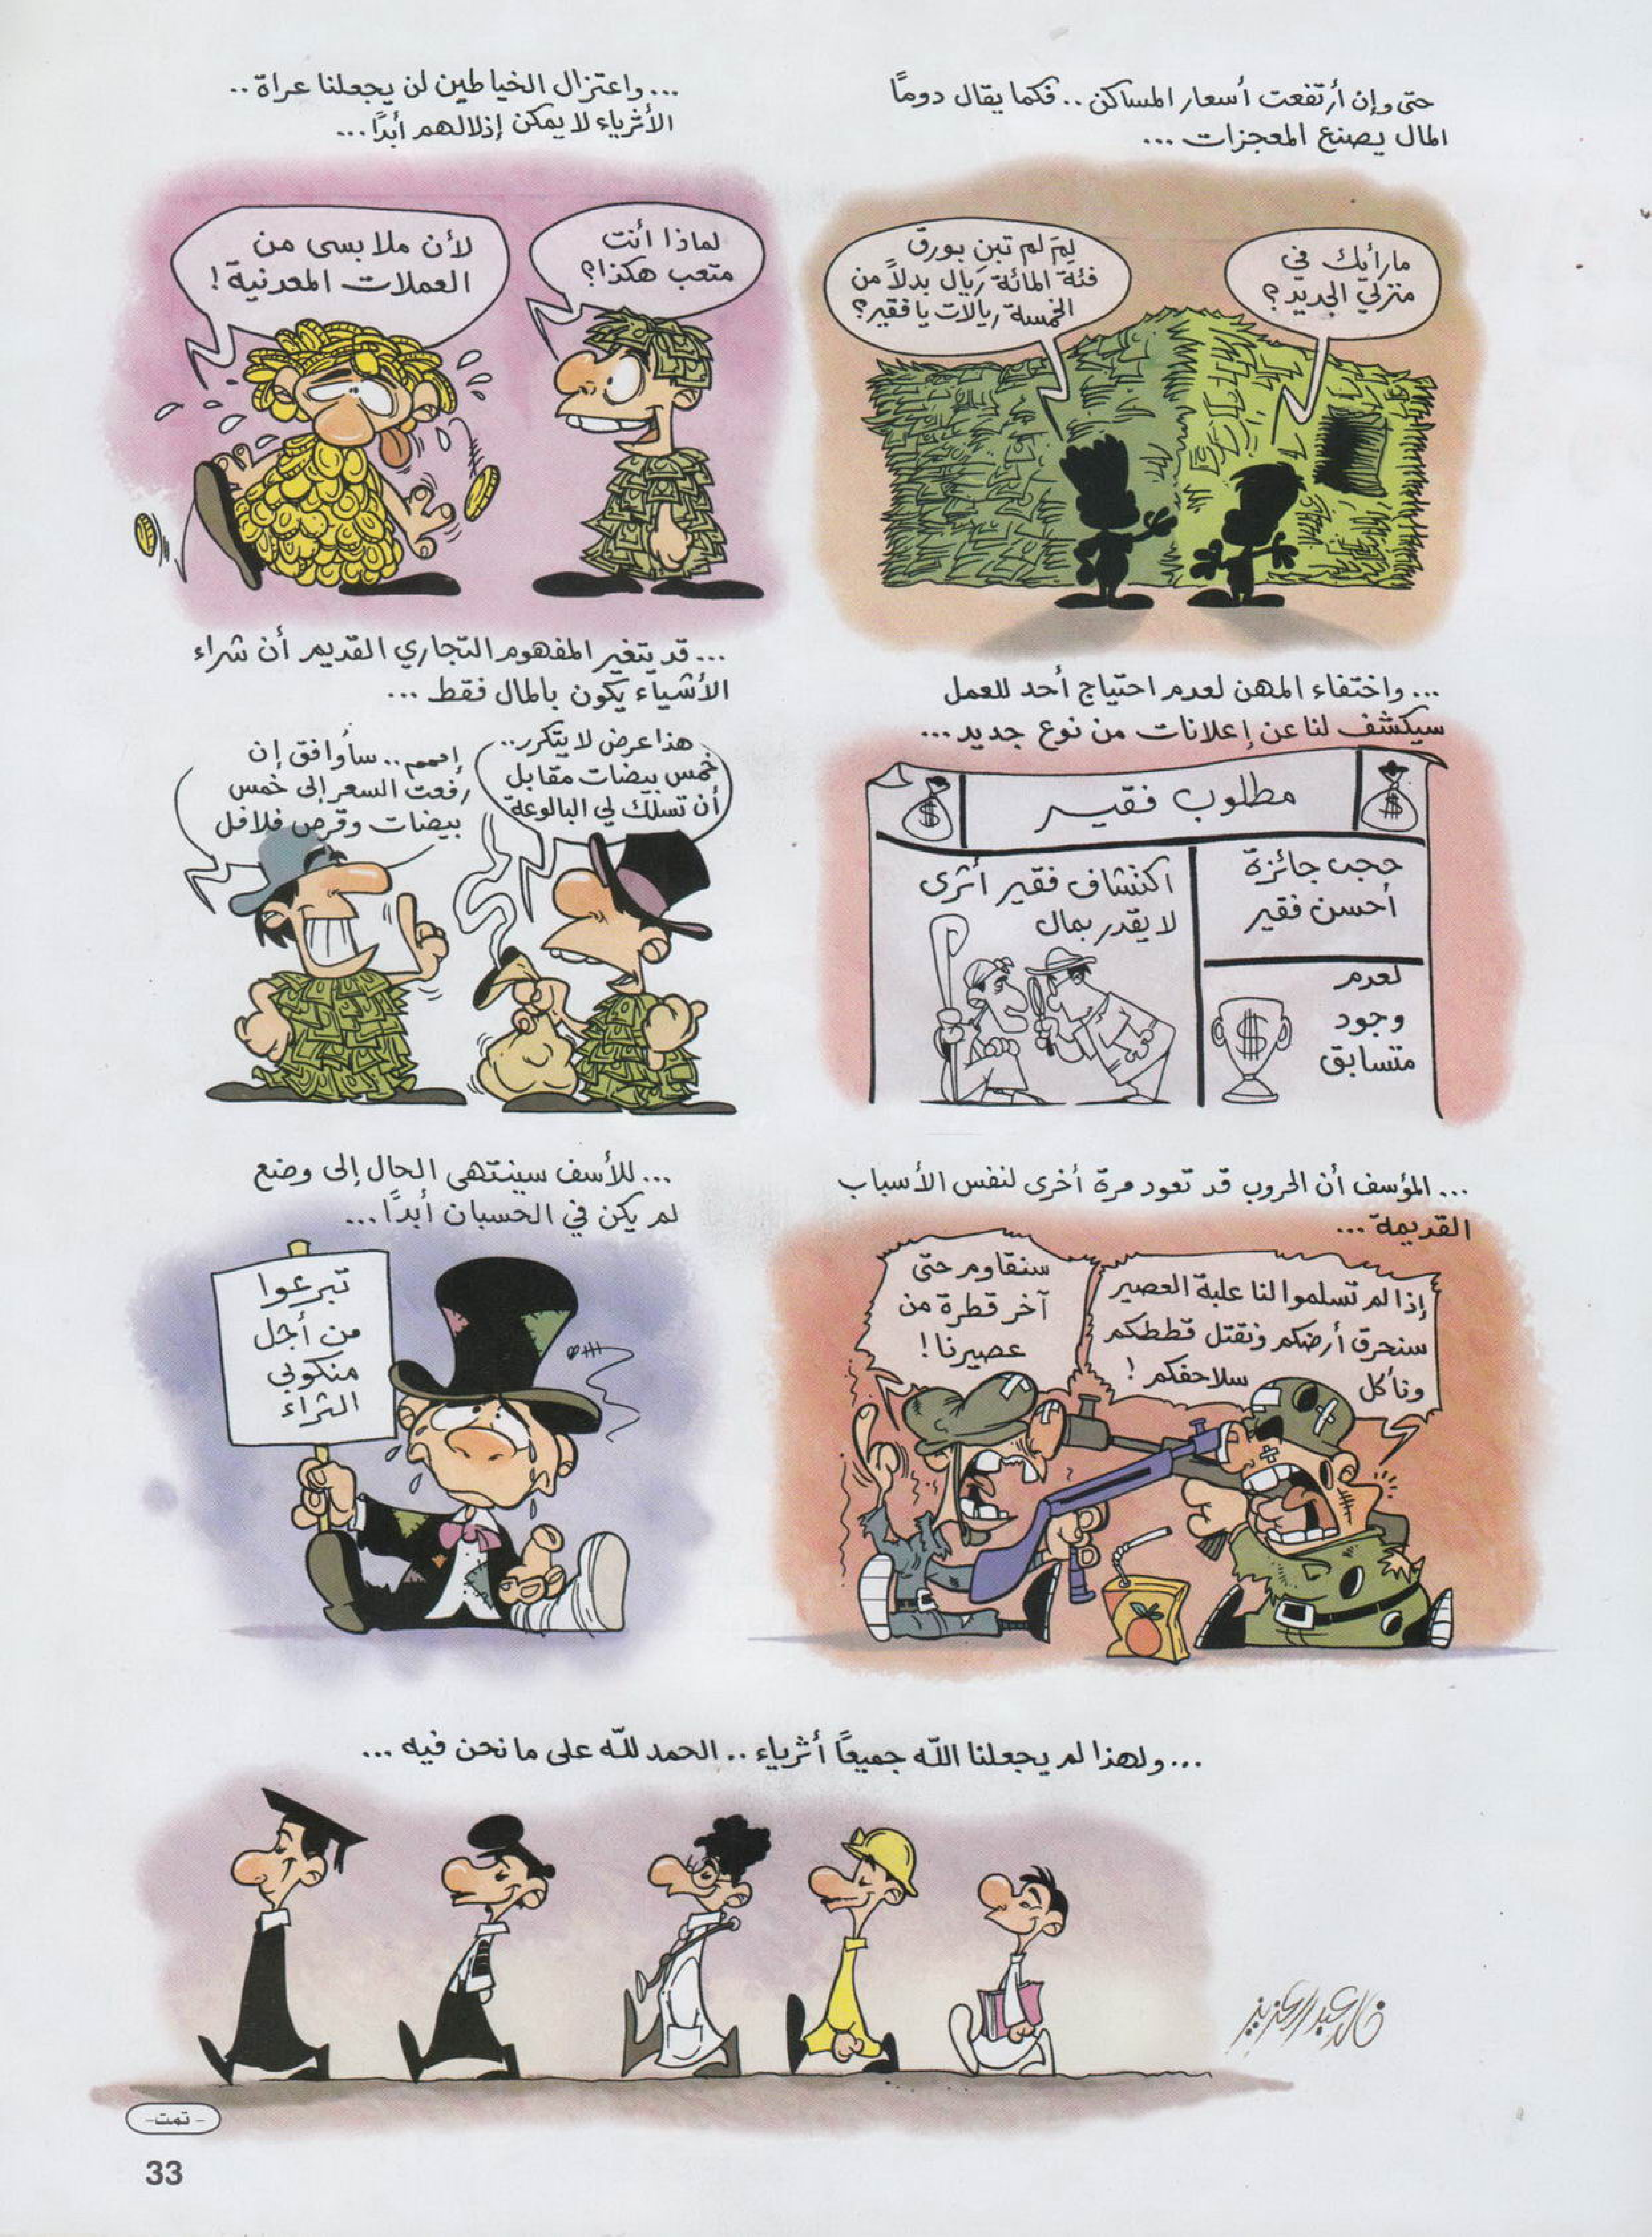 حتى وإن أرتفعت أسعار المساكن .. فكما يقال دوماً
المال يصنع المعجزات ...
ما رأيك في
منزلي الجديد ؟
لِمَ لم تبنِ بورق
فئة المائة ريال بدلاً من
الخمسة ريالات يا فقير؟
... واعتزال الخياطين لن يجعلنا عراة ..
الأثرياء لا يمكن إذلالهم أبداً ...
لماذا أنت
متعب هكذا؟
لأن ملابسي من
العملات المعدنية !
... واختفاء المهن لعدم احتياج أحد للعمل
سيكشف لنا عن إعلانات من نوع جديد ...
مطلوب فقير
حجب جائزة
أحسن فقير
لعدم
وجود
متسابق
اكتشاف فقير أثري
لا يقدر بمال
... قد يتغير المفهوم التجاري القديم أن شراء
الأشياء يكون بالمال فقط ...
هذا عرض لا يتكرر..
خمس بيضات مقابل
أن تسلك لي البالوعة
إممم .. سأوافق إن
رفعت السعر إلى خمس
بيضات وقرص فلافل
... المؤسف أن الحروب قد تعود مرة أخرى لنفس الأسباب
القديمة ...
إذا لم تسلموا لنا علبة العصير
سنحرق أرضكم ونقتل قططكم
ونأكل سلاحفكم !
سنقاوم حتى
آخر قطرة من
عصيرنا !
... للأسف سينتهي الحال إلى وضع
لم يكن في الحسبان أبداً ...
تبرعوا
من أجل
منكوبي
الثراء
... ولهذا لم يجعلنا الله جميعاً أثرياء .. الحمد لله على ما نحن فيه ...
خالد عبدالعزيز
- تمت -
33